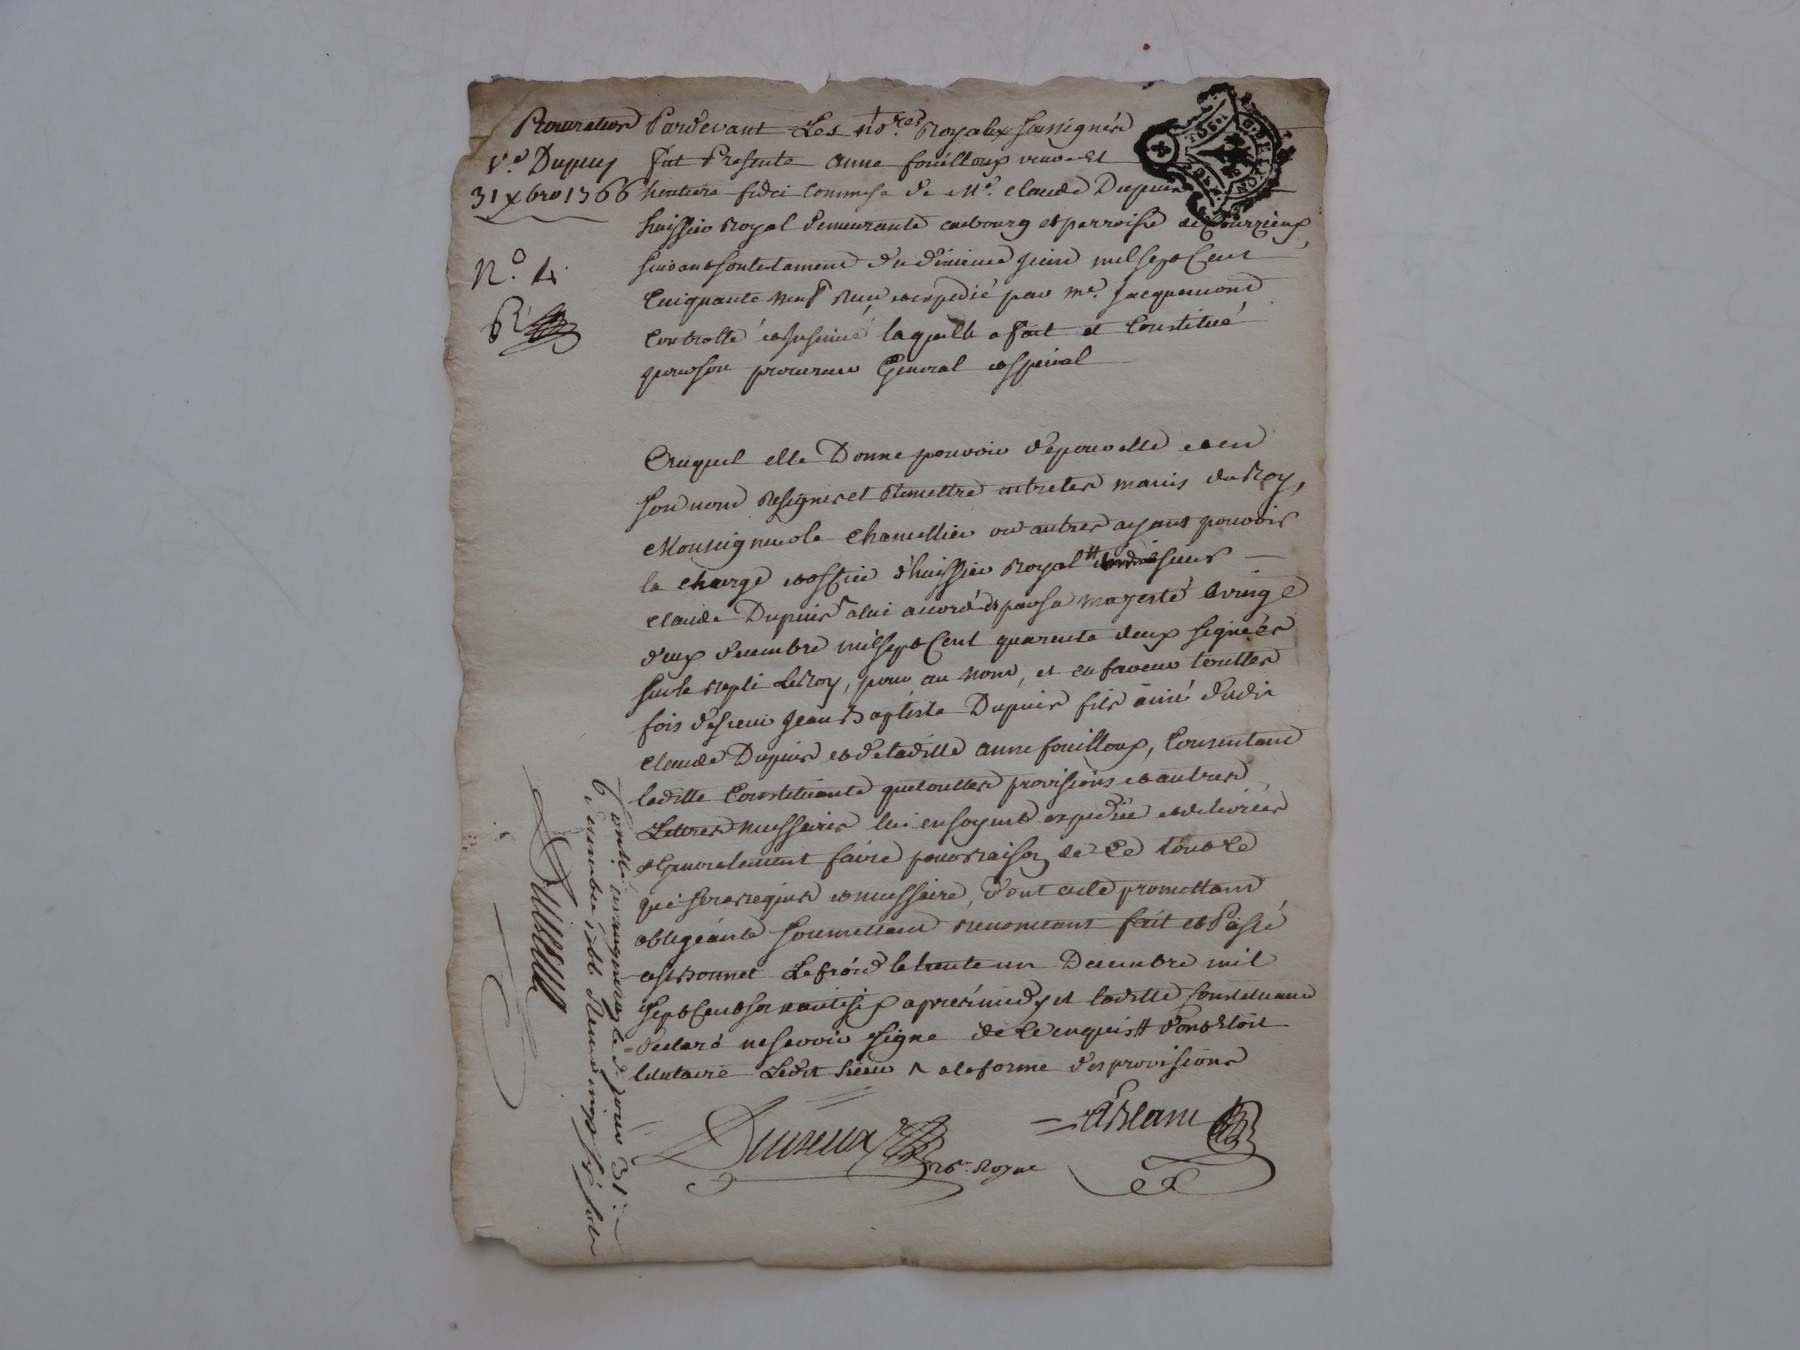 Procuration
Ve. Dupuy
31 xbre 1766
N.o 4.
Pardevant Les No.res Royaux soussignés
fut Presente anne fouilloux veuve et
heritiere fidei commise de Me. Claude Dupuis
huissier Royal demeurante au bourg et parroisse de Courzieux,
suivant son testament du dixieme juin mil sept Cent
Cinquante neuf Reçu et expedié par me. Jacquemond
Controllé et insinué laquelle a fait et Constitué
pour son procureur General et special
Auquel elle Donne pouvoir de pour elle et en
son nom Resigner et Remettre entre les mains du Roy,
Monseigneur le Chancellier ou autres ayant pouvoir
la charge et office d'huissier Royal # sieur
Claude Dupuis a lui accordé par sa majesté le vingt
deux decembre mil sept Cent quarente deux signées
sur le repli Le Roy, pour au nom, et en faveur touttes
fois de sieur Jean Baptiste Dupuis fils ainé dudit
Claude Dupuis et de laditte anne fouilloux, Consentant
laditte Constituante que touttes provisions et autres
Lettres necessaires lui en soyent expediées et delivrées
et Generalement faire pour raison de Ce tout Ce
qui sera requis et necessaire, dont acte promettant
obligeante soumettant renoncant fait et Passé
a st Bonnet Le froid le trente un Decembre mil
sept Cent soixante six apres midy et laditte Constituante
declaré ne savoir signe de Ce enquise # dont Etoit
titulaire Ledit sieur ^ a la forme des provisions
No. Royal
Controllé a le 31:
decembre 1766 Reçu